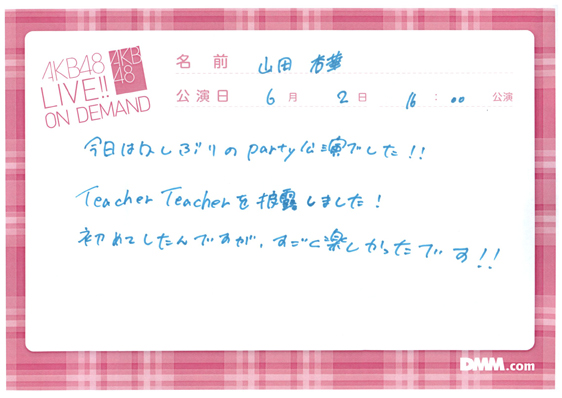 AKB48
LIVE!!
ON DEMAND
AKB
48
名前 山田 杏華
公演日 6月 2日 16:00 公演
今日は久しぶりのparty公演でした!!
Teacher Teacherを披露しました!
初めてしたんですが、すごく楽しかったです!!
DMM.com